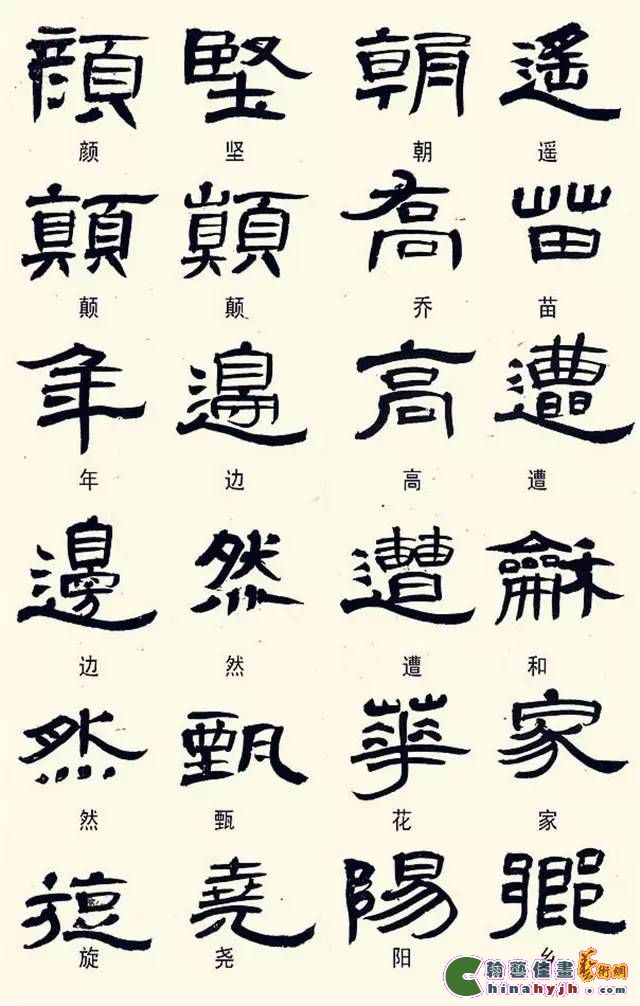 顔 堅 朝 遥
颜 坚 朝 遥
顛 顛 喬 苗
颠 颠 乔 苗
年 邊 高 遭
年 边 高 遭
邊 然 遭 龢
边 然 遭 和
然 甄 華 家
然 甄 花 家
旋 堯 陽 鄉
旋 尧 阳 乡
翰藝佳畫 藝術網
hinahyjh.com